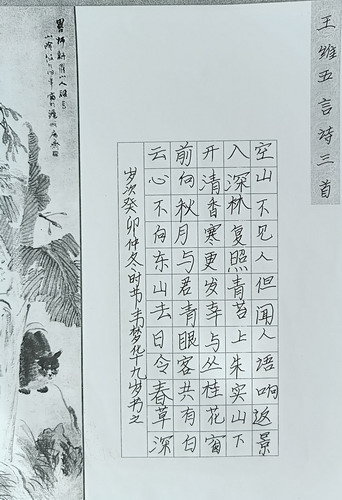 王维五言诗三首
空山不见人但闻人语响返景
入深林复照青苔上朱实山下
开清香寒更发幸与丛桂花窗
前向秋月与君青眼客共有白
云心不向东山去日令春草深
岁次癸卯仲冬时节韦梦华十九岁书之
新羅山人